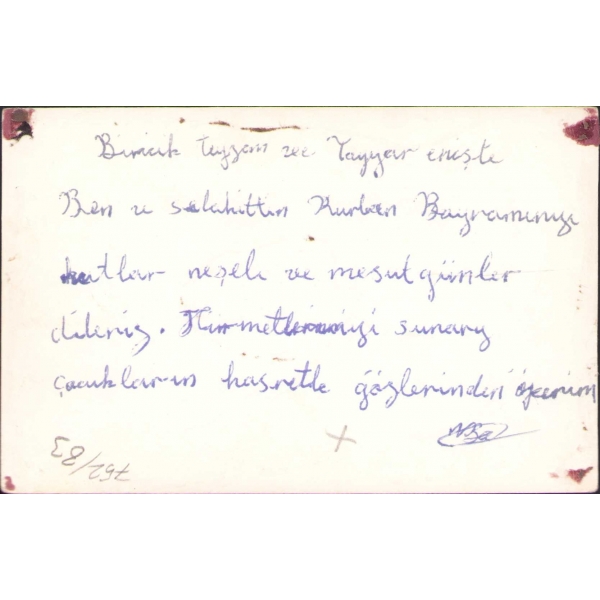 Biricik teyzem ve Tayyar enişte
Ben ve selahittin Kurben Bayramınızı
kutlar neşeli ve mesut günler
dileriz. Hürmetlerimizi sunarız
çocukların hasretle gözlerinden öperim
752/83